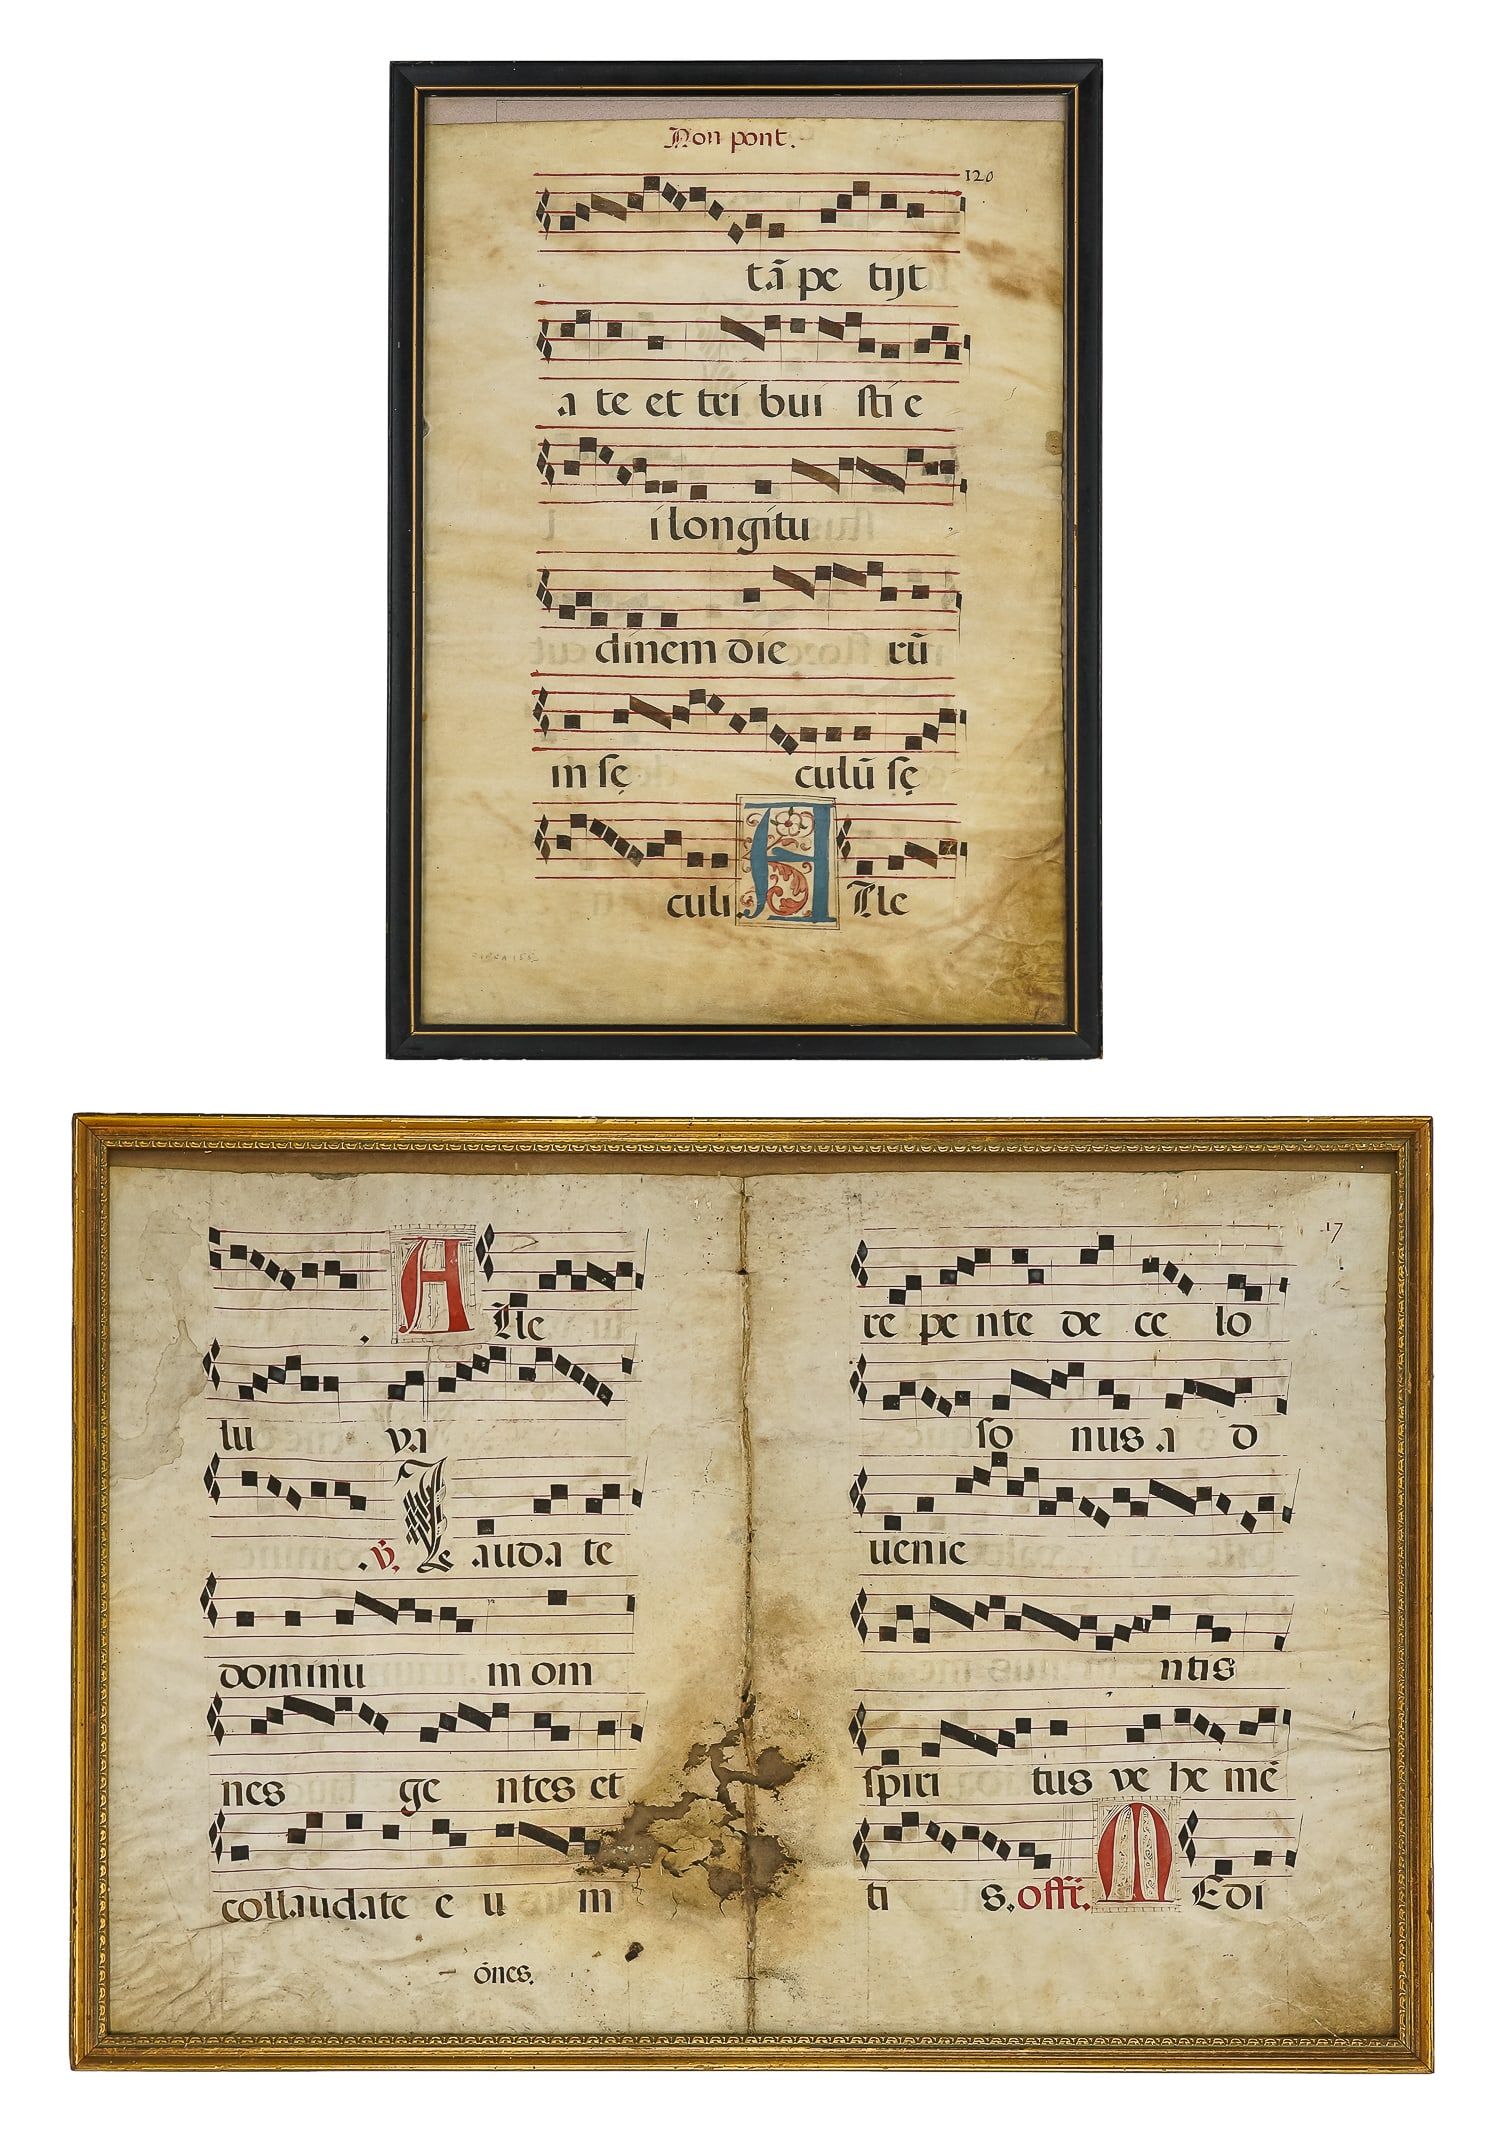 Non pont.
120
tã pe tijt
a te et tri bui sti e
i longitu
dinem die rũ
in sę culũ sę
culi. A Lle
17
. A Lle
lu ya
.℣. L auda te
dominu m om
nes ge ntes et
collaudate e u m
õnes.
re pe nte de ce lo
so nus a d
uenie
ntis
spiri tus ve he mẽ
ti s. offi. M Edi